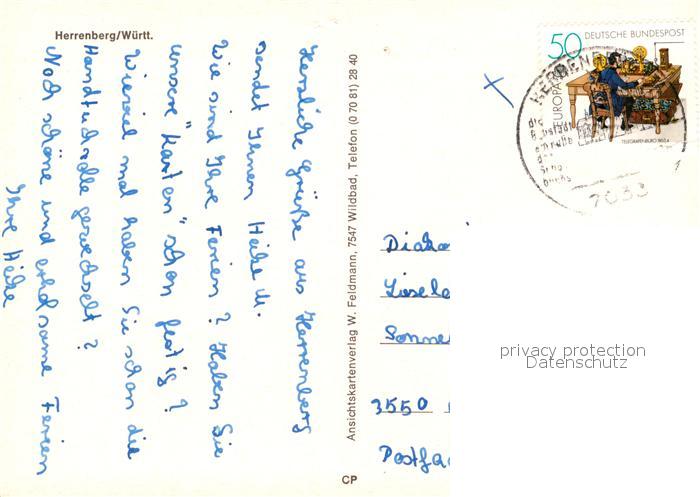 Herrenberg/Württ.
Herzliche Grüße aus Herrenberg
sendet Ihnen Heike U.
Wie sind Ihre Ferien? Haben Sie
unsere "Karten" schon fertig?
Wieviel mal haben Sie schon die
Handtuchrolle gewechselt?
Noch schöne und erholsame Ferien
Ihre Heike
Ansichtskartenverlag W. Feldmann, 7547 Wildbad, Telefon (0 70 81) 28 40
CP
50 DEUTSCHE BUNDESPOST
EUROPA
TELEGRAFENBÜRO 1863
HERRENBERG
die
des
7033
1
Diako
Liesel
Sonne
3550
Postfac
privacy protection
Datenschutz